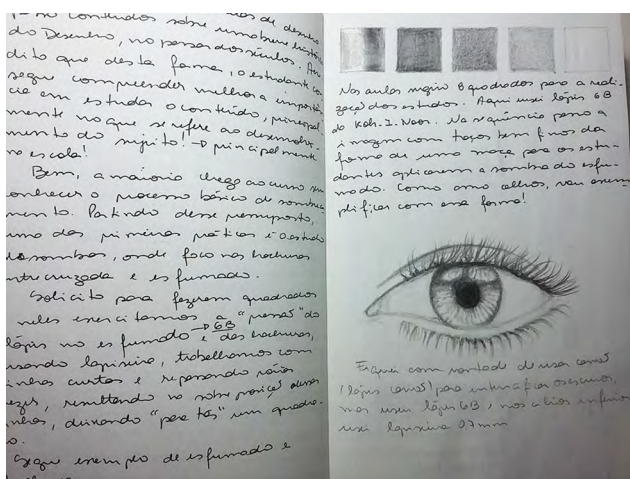 do Desenho, no passar dos séculos. Acre
dito que desta forma, o estudante con
segue compreender melhor a importân
cia em estudar o conteúdo, principal
mente no que se refere ao desenvolvi
mento do sujeito! → principalmente
na escola!
Bem, a maioria chega ao curso sem
conhecer o processo básico de sombrea
mento. Partindo desse pressuposto,
uma das primeiras práticas é o estudo
de sombras, onde foco nas hachuras
entrecruzada e esfumado.
Solicito para fazerem quadrados
neles exercitamos a "pressão" do
lápis no esfumado → 6B e das hachuras,
usando lapiseira, trabalhamos com
linhas curtas e repassando várias
vezes, resultando na sobreposição dessas
linhas, deixando "para trás" um quadra-
do.
Segue exemplo de esfumado e
Nas aulas sugiro 8 quadrados para a reali-
zação dos estudos. Aqui usei lápis 6B
do Koh-I-Noor. Na sequência passo a
imagem com traços bem finos da
forma de uma maçã para os estu-
dantes aplicarem a sombra do esfu-
mado. Como amo olhos, vou exem-
plificar com essa forma!
Fiquei com vontade de usar carvão
(lápis carvão) para intensificar os escuros,
mas usei lápis 6B, nos cílios inferiores
usei lapiseira 0.7mm